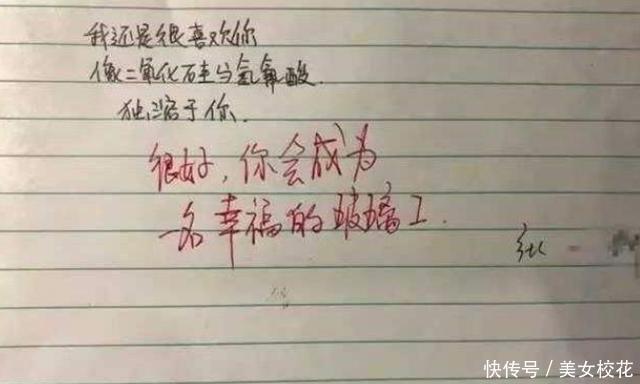 我还是很喜欢你
像二氧化硅与氢氟酸.
独溶于你.
很好,你会成为
一名幸福的玻璃工.
快传号/美女校花